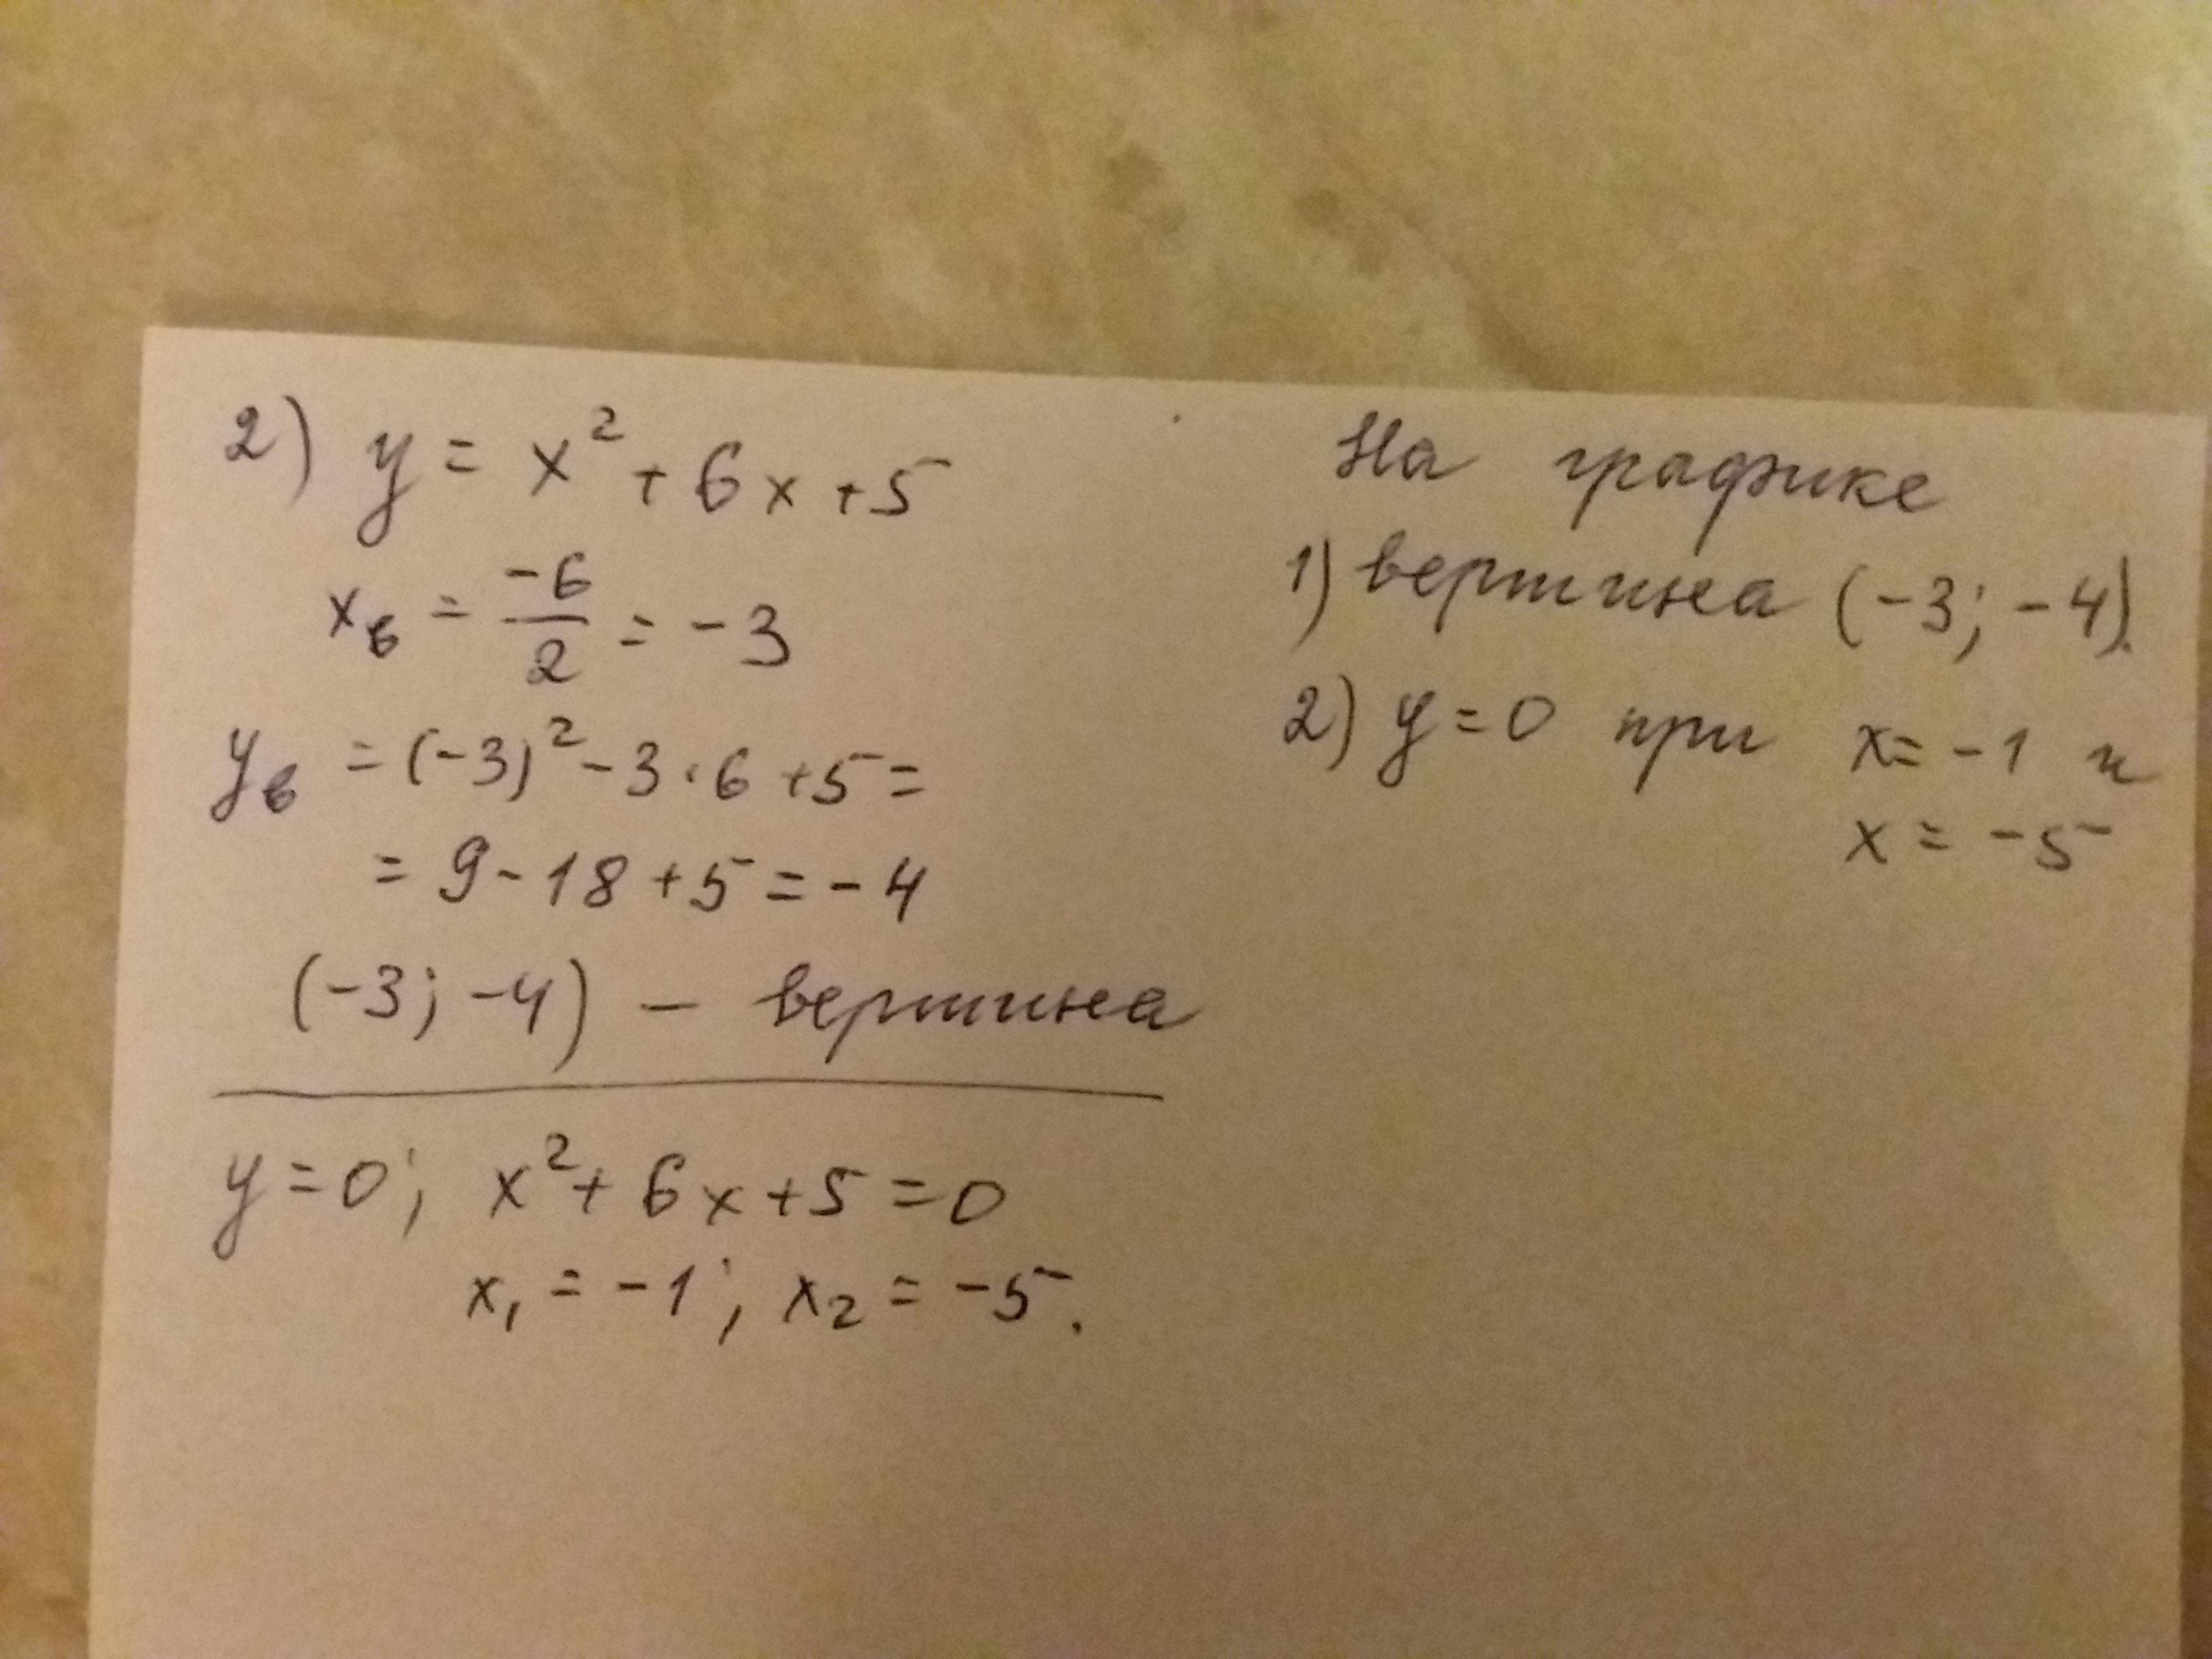 2) y = x² + 6x + 5
xв = -6/2 = -3
yв = (-3)² - 3·6 + 5 =
= 9 - 18 + 5 = -4
(-3; -4) - вершина
y = 0; x² + 6x + 5 = 0
x₁ = -1; x₂ = -5.
На графике
1) вершина (-3; -4).
2) y = 0 при x = -1 и
x = -5